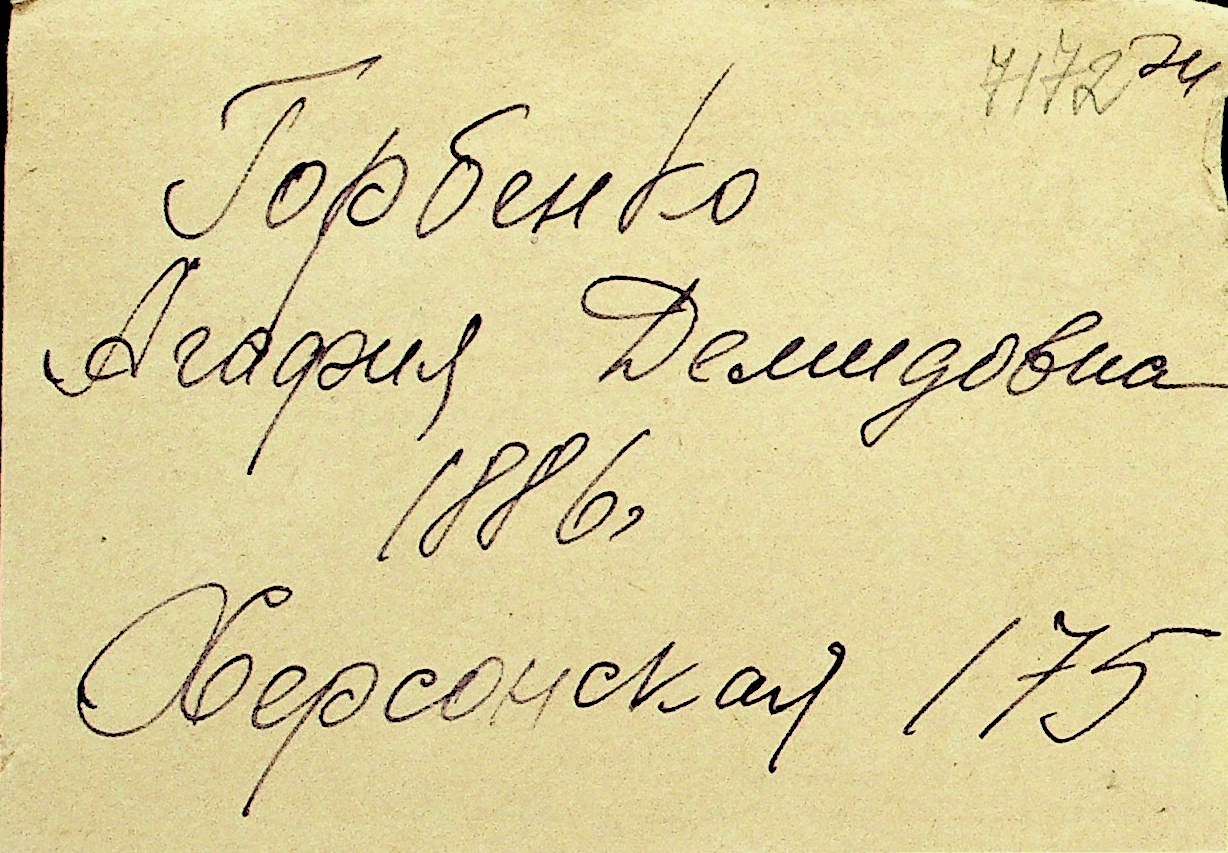 7172
Горбенко
Агафия Демидовна
1886,
Херсонская 175